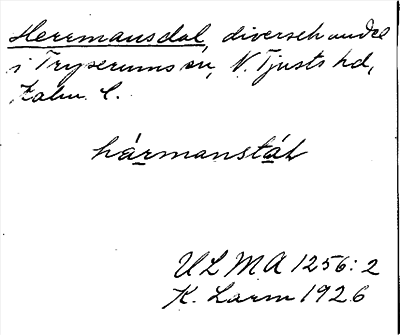 Herrmansdal, diversehandel
i Tryserums sn, N. Tjusts hd,
Kalm. l.
härmanstál
ULMA 1256:2
K. Larm 1926